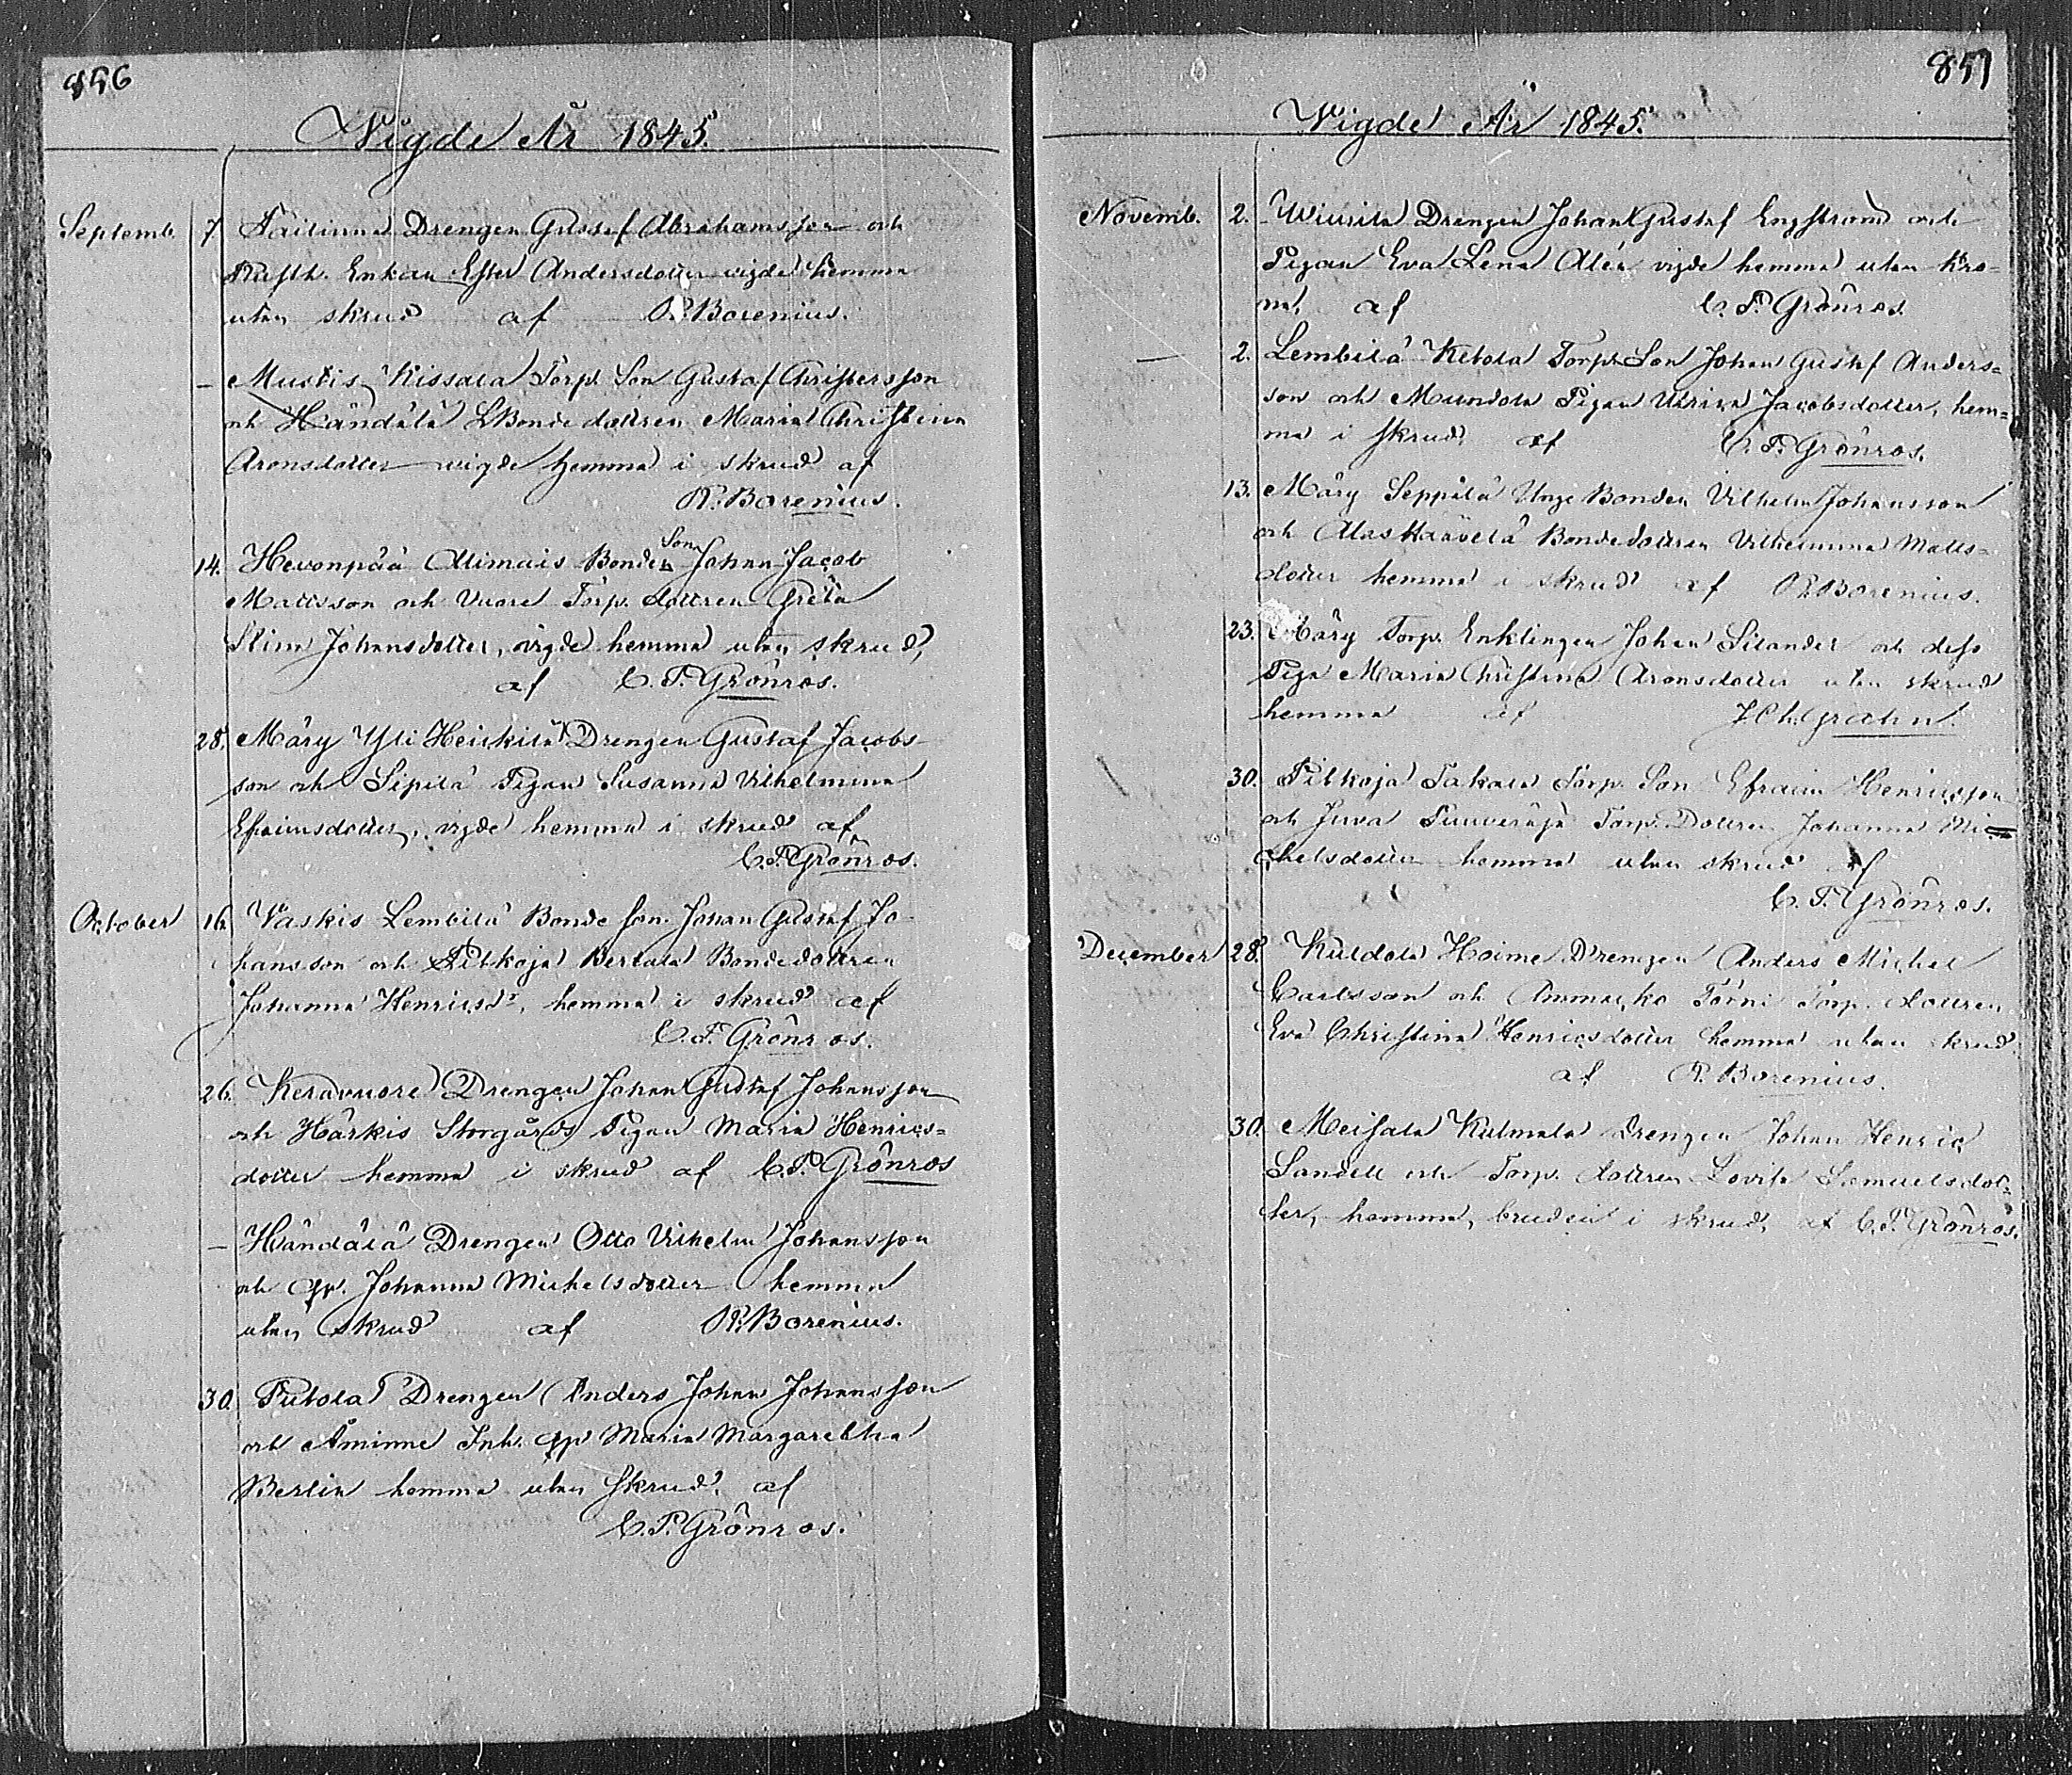 856
Vigde År 1845.
Septemb. 7 Drengen Gustaf Abrahamsson och
Rusth. Enkan Ester Andersdotter vigde hemma
utan skrud af R. Borenius.
– Mustis Kissala Torp. Son Gustaf Christersson
och Händälä Bondedottren Maria Christina
Aronsdotter vigde hemma i skrud af
R. Borenius.
14. Hevonpää Alimais Bonden Son Johan Jacob
Mattsson och Vuore Torp. dottren Greta
Stina Johansdotter, vigde hemma utan skrud,
af C. P. Grönros.
28. Märy Yli Heickilä Drengen Gustaf Jacobs-
son och Sipilä Pigan Susanna Vilhelmina
Efraimsdotter, vigde hemma i skrud af
C. P. Grönros.
October 16. Vaskis Lembilä Bonde son Johan Gustaf Jo-
hansson och Pitkoja Bertala Bondedottren
Johanna Henricsdr, hemma i skrud af
C. P. Grönros.
26. Keravuore Drengen Johan Gustaf Johansson
och Härkis Storgårds Pigan Maria Henrics=
dotter hemma i skrud af C. P. Grönros
– Händälä Drengen Otto Vilhelm Johansson
och qp. Johanna Michelsdotter hemma
utan skrud af R. Borenius.
30. Drengen Anders Johan Johansson
och Åminne Inh. qp Maria Margaretha
Berlin hemma utan skrud. af
C. P. Grönros.
857
Vigde År 1845.
Novemb. 2. Wiurila Drengen Johan Gustaf Engström och
Pigan Eva Lena Alén vigde hemma utan Kro=
na, af C. P. Grönros.
– 2. Lembilä Ketola Torp. Son Johan Gustaf Anders=
son och Mundola Pigan Ulrica Jacobsdotter, hem=
ma i skrud, af C. P. Grönros.
13. Märy Seppälä Unge Bonden Vilhelm Johansson
och Bondedottren Vilhelmina Matts=
dotter hemma i skrud af R. Borenius.
23. Märy Torp. Enklingen Johan Silander och dess
Piga Maria Christina Aronsdotter utan skrud
hemma af Grahn.
30. Pitkoja Takala Torp. Son Efraim Henricsson
och Juva Torp. Dottren Johanna Mi=
chelsdotter hemma utan skrud af
C. P. Grönros.
December 28. Kuldola Hoime Drengen Anders Michel
Carlsson och Ammaiko Törni Torp. dottren
Eva Christina Henricsdotter hemma utan skrud
af R. Borenius.
30. Meisala Kulmala Drengen Johan Henric
Sandell och Torp. dottren Lovisa Samuelsdot=
ter, hemma, bruden i skrud, af C. P. Grönros.